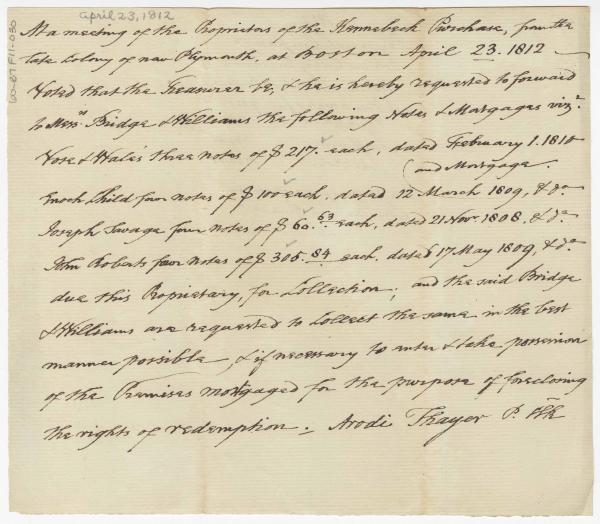 April 23, 1812
60-67 F11-030
At a meeting of the Proprietors of the Kennebeck Purchase, from the
late Colony of new Plymouth, at Boston April 23. 1812
Voted that the Treasurer be, & he is hereby requested to forward
to Messrs. Bridge & Williams the following Notes & Mortgages vizt.
Vose & Hale's three notes of $217. each, dated February 1. 1810
(and Mortgage.
Enoch Child four notes of $100 each, dated 12 March 1809, & do.
Joseph Savage four notes of $60.63 each, dated 21 Nov. 1808. & do.
John Roberts four notes of $305.84 each, dated 17 May 1809, & do.
due this Propriety, for Collection; and the said Bridge
& Williams are requested to Collect the same in the best
manner possible, & if necessary to enter & take possession
of the Premises mortgaged for the purpose of foreclosing
the rights of redemption. Arodi Thayer P. Clk